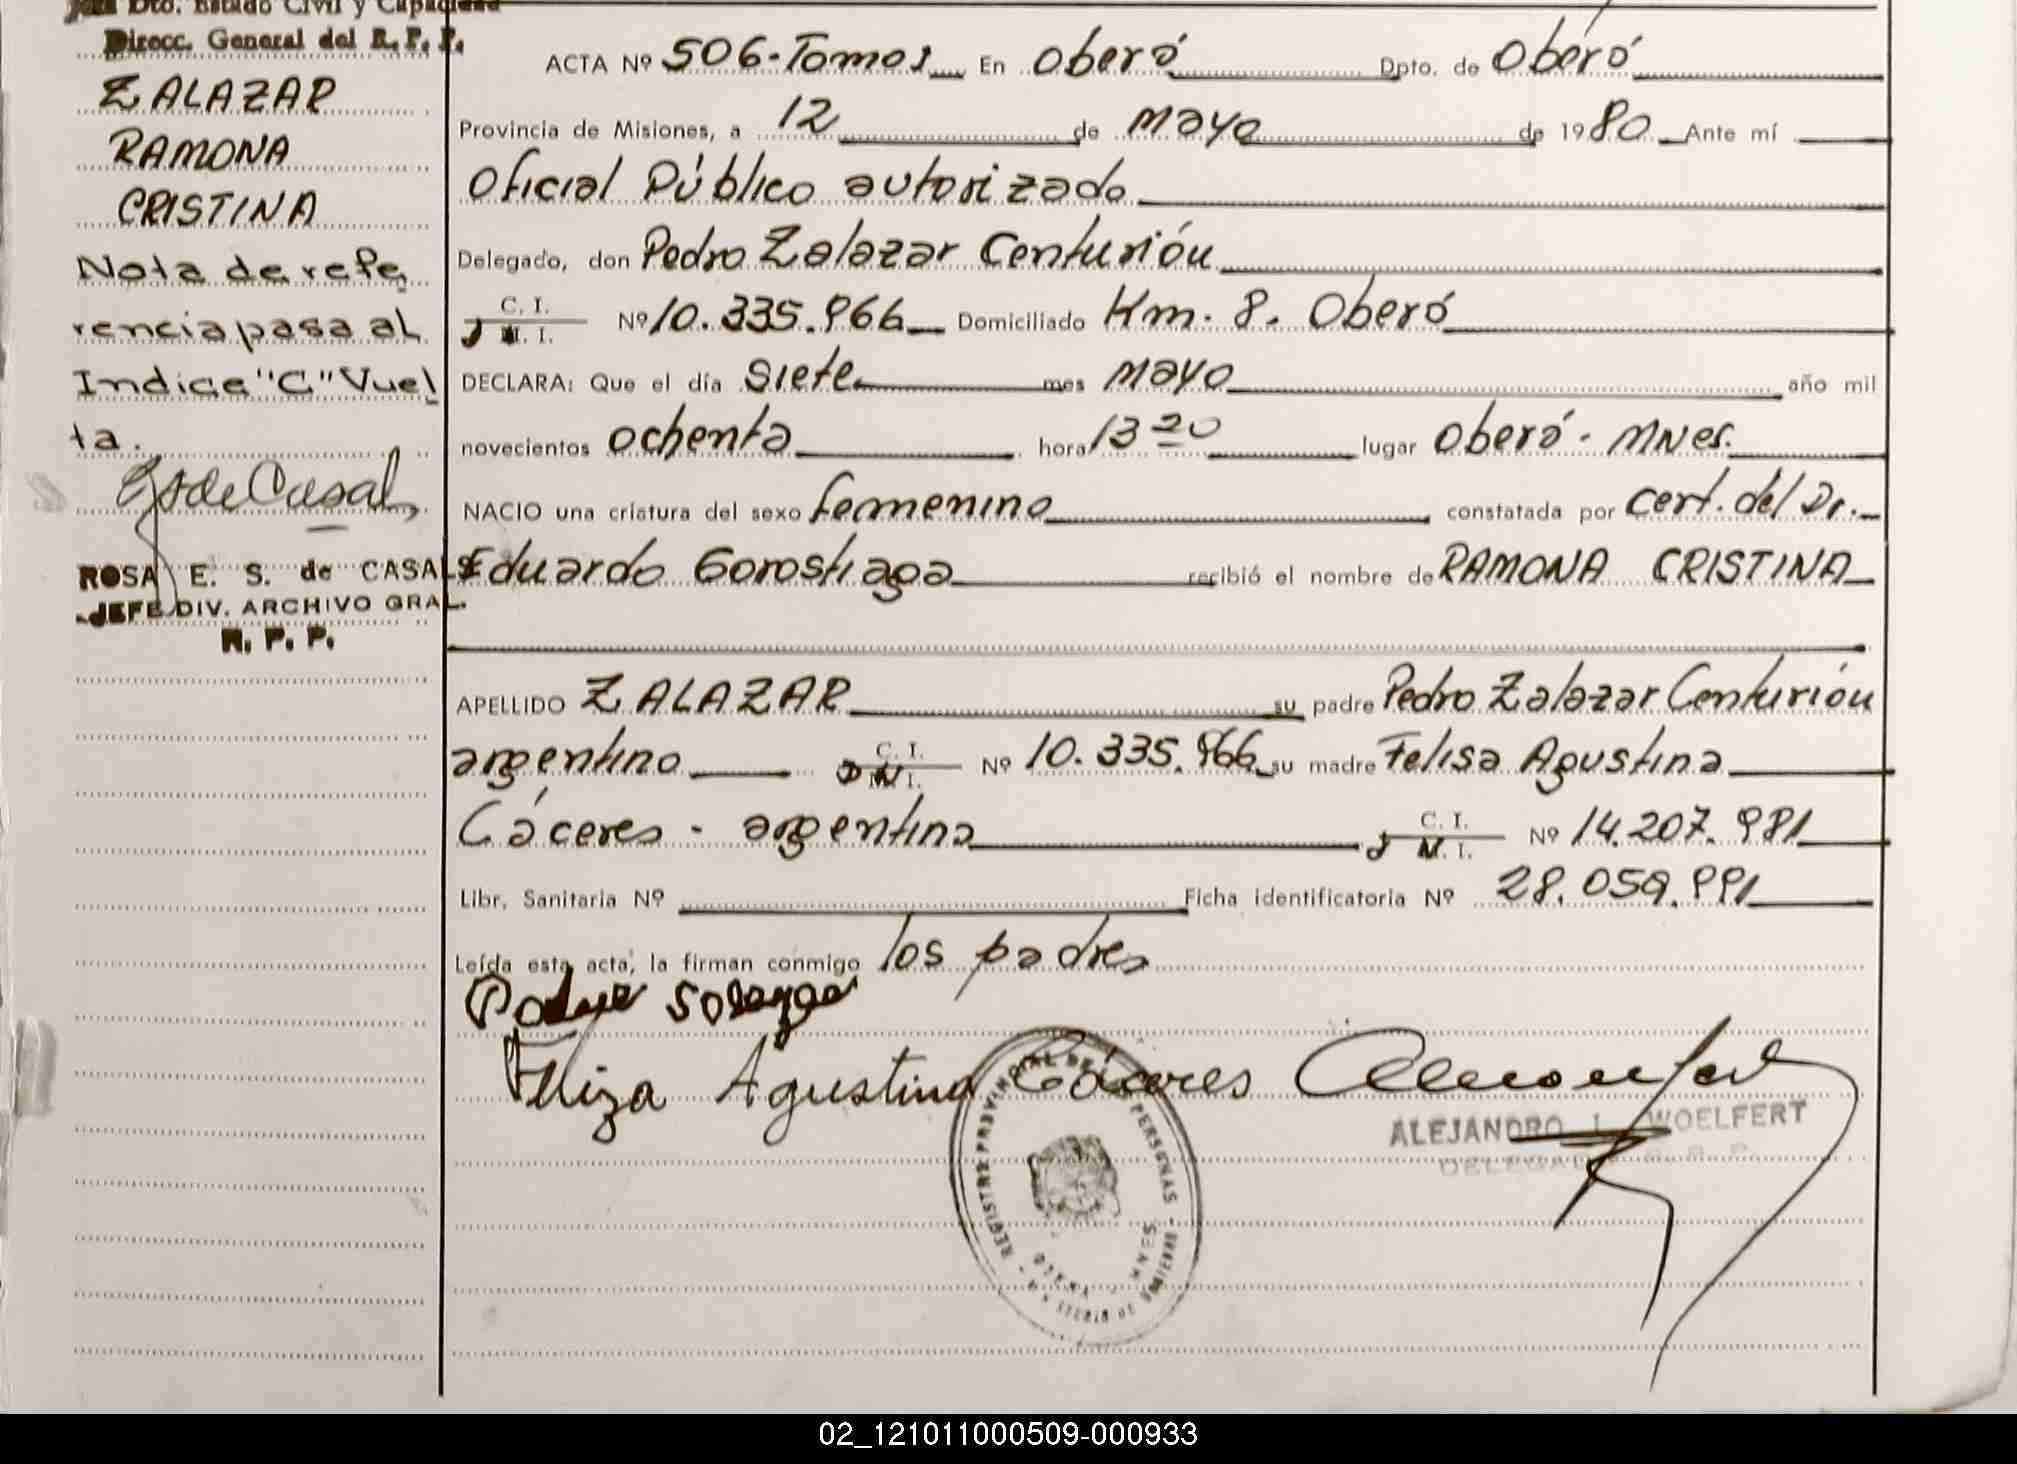 Jefa Dto. Estado Civil y Capacidad
Direcc. General del R. P. P.
ZALAZAR
RAMONA
CRISTINA
Nota de refe
rencia pasa al
Indice "C" Vuel
ta.
de Casal
ROSA E. S. de CASALS
JEFE DIV. ARCHIVO GRAL.
R. P. P.
ACTA Nº 506-Tomo 1 En Oberá Dpto. de Oberá
Provincia de Misiones, a 12 de mayo de 1980 Ante mí
Oficial Público autorizado
Delegado, don Pedro Zalazar Centurión
C. I.
M. I. Nº 10.335.966 Domiciliado Km. 8. Oberá
DECLARA: Que el día siete mes mayo año mil
novecientos ochenta hora 13 20 lugar Oberá - MNes.
NACIO una criatura del sexo femenino constatada por Cert. del Dr.
Eduardo Gorostiaga recibió el nombre de RAMONA CRISTINA
APELLIDO ZALAZAR su padre Pedro Zalazar Centurión
argentino C. I. D N I. Nº 10.335.966 su madre Felisa Agustina
Cáceres - argentina C. I. M. I. Nº 14.207.981
Libr. Sanitaria Nº Ficha identificatoria Nº 28.059.991
Leída esta acta, la firman conmigo los padres
Feliza Agustina Cáceres
REGISTRO PROVINCIAL DE PERSONAS
OBERA MNES
ALEJANDRO L. WOELFERT
DELEGADO R. P. P.
02_121011000509-000933